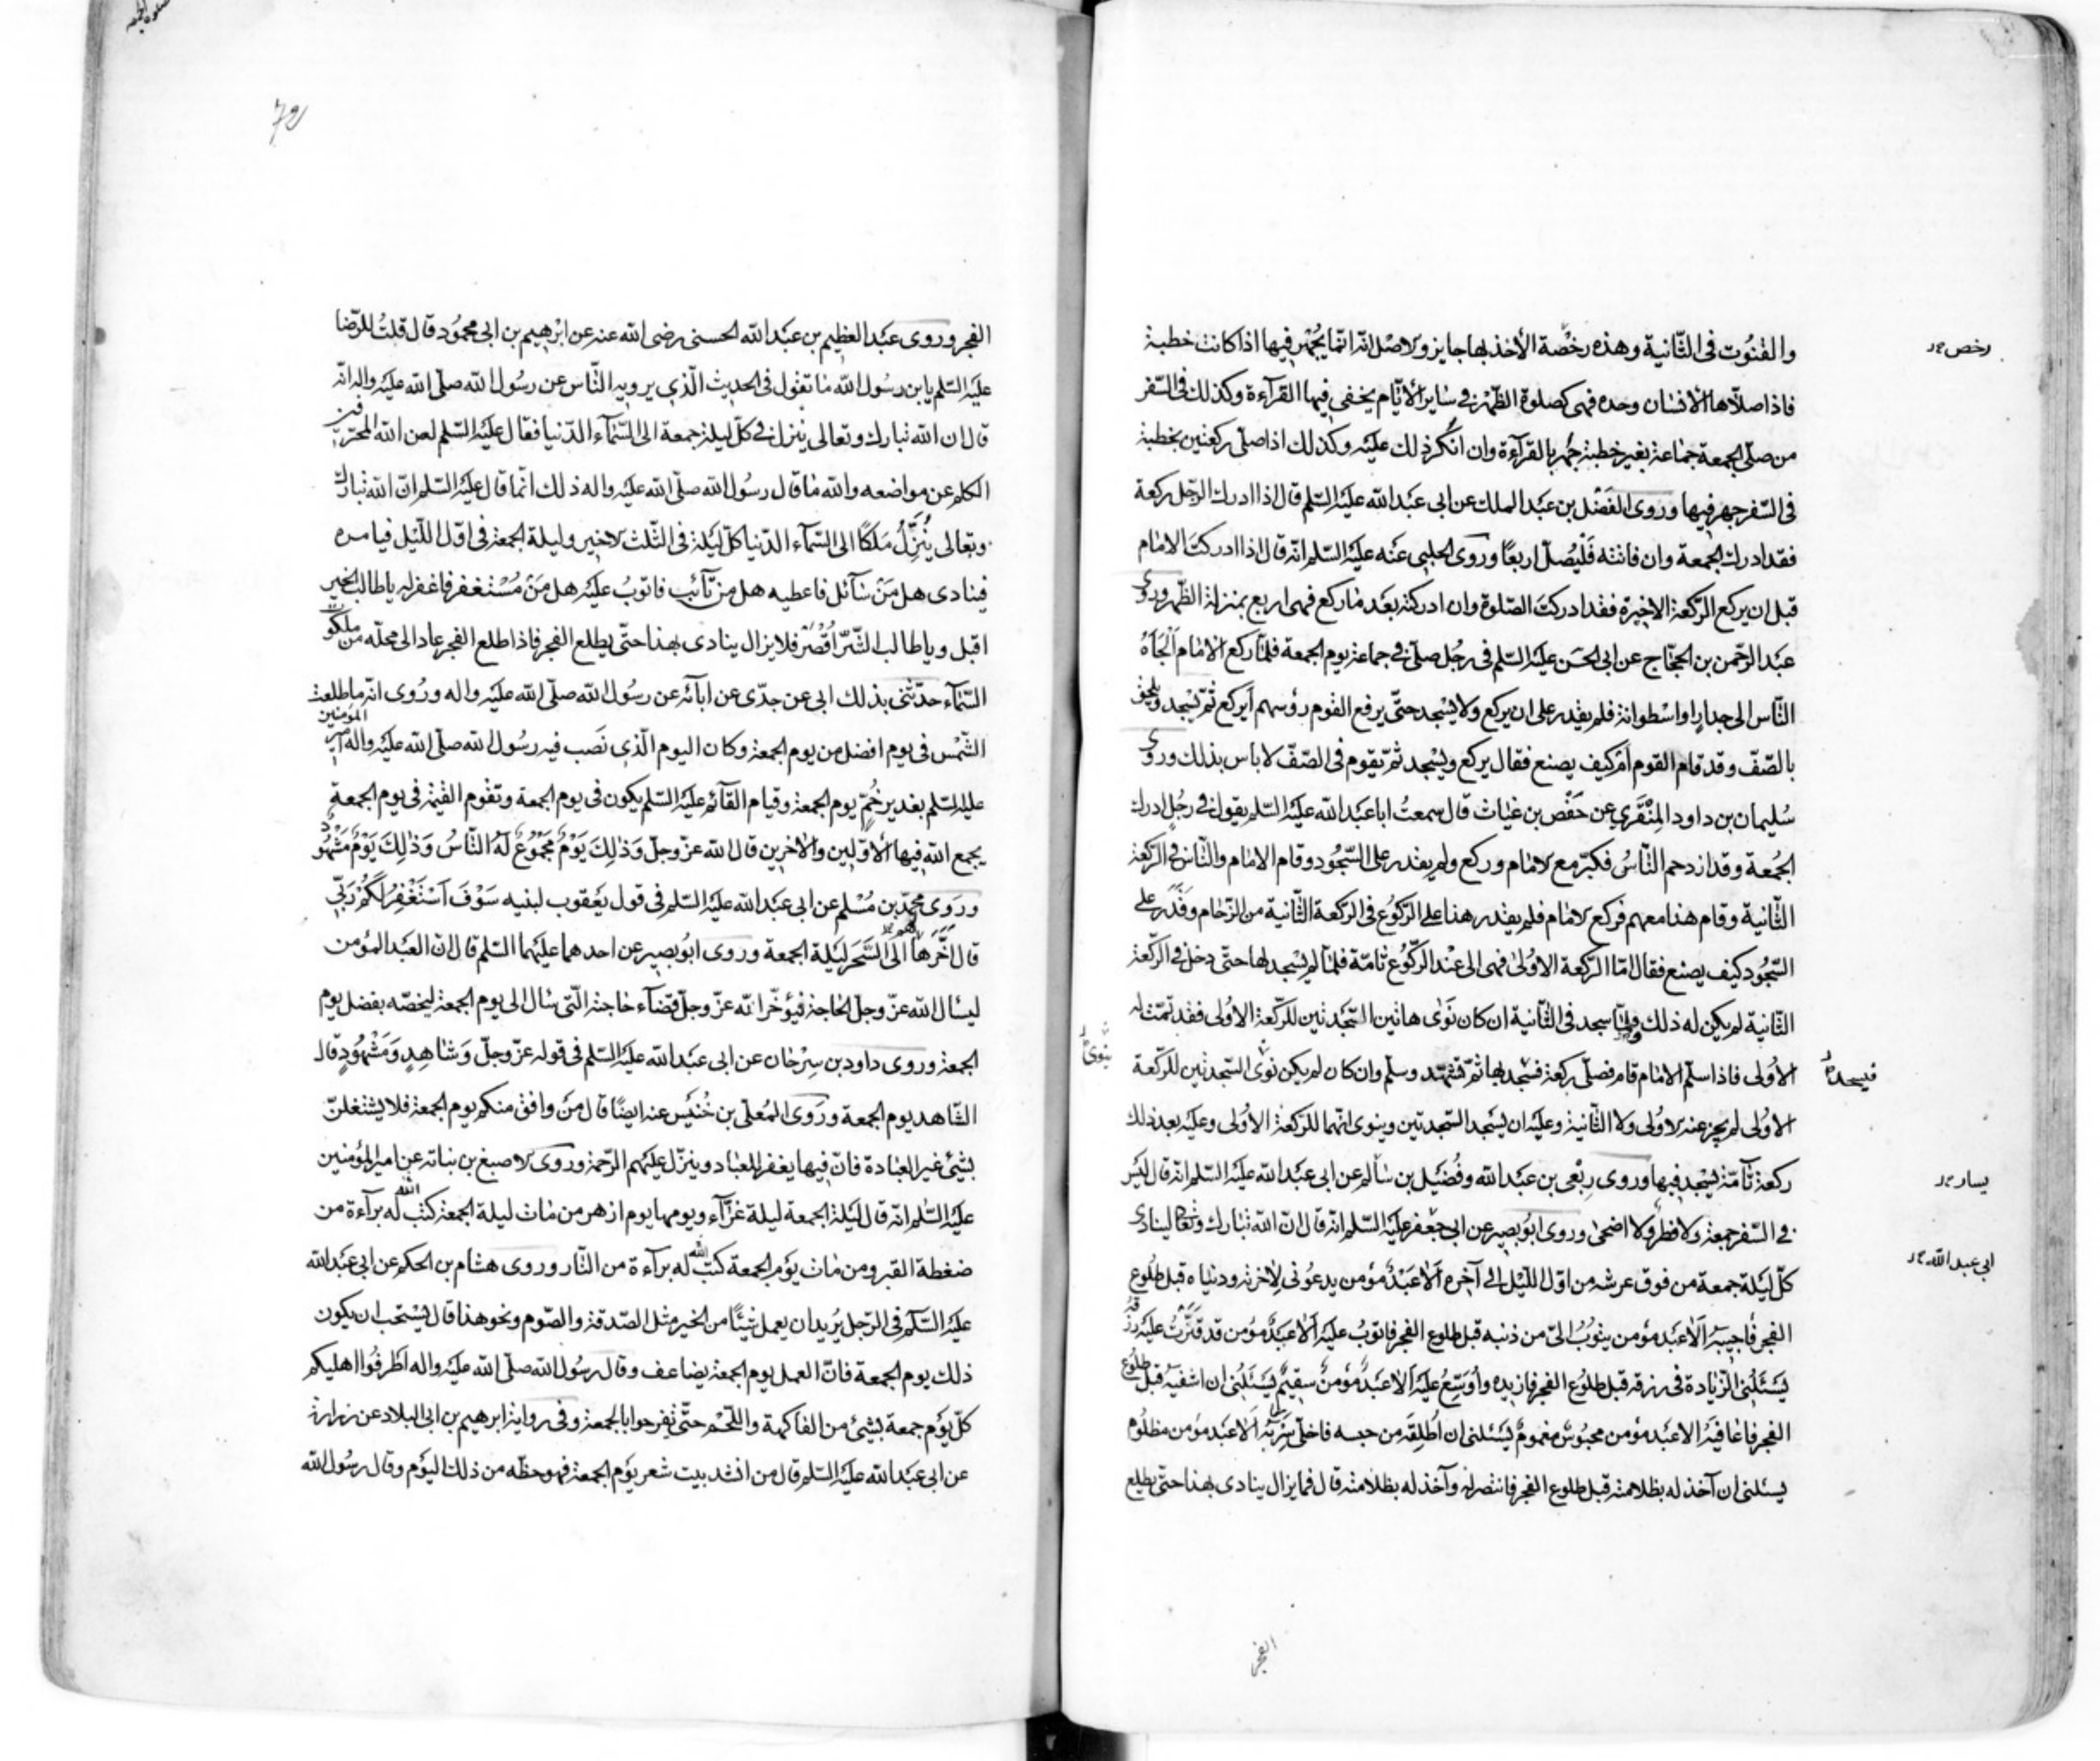 والقنوت فى الثانية وهذه رخصة الأخذ بها جايز والاصل انه انما يجهر فيها اذا كانت خطبة
رخص
فاذا صلاها الانسان وحده فهى كصلوة الظهر فى ساير الأيام يخفى فيها القرآءة وكذلك فى السفر
من صلى الجمعة جماعة بغير خطبة جهر بالقرآءة وان انكر ذلك عليه وكذلك اذا صلى ركعتين بخطبة
فى السفر جهر فيها وروى الفضل بن عبد الملك عن ابى عبد الله عليه السلم قال اذا ادرك الرجل ركعة
فقد ادرك الجمعة وان فاتته فليصل اربعا وروى الحلبى عنه عليه السلم انه قال اذا ادركت الامام
قبل ان يركع الركعة الاخيرة فقد ادركت الصلوة وان ادركته بعد ما ركع فهى اربع بمنزلة الظهر وروى
عبد الرحمن بن الحجاج عن ابى الحسن عليه السلم فى رجل صلى فى جماعة يوم الجمعة فلما ركع الامام الجأه
الناس الى جدار او اسطوانة فلم يقدر على ان يركع ولا يسجد حتى يرفع القوم رؤسهم أيركع ثم يسجد ويلحق
بالصف وقد قام القوم ام كيف يصنع فقال يركع ويسجد ثم يقوم فى الصف لا باس بذلك وروى
سليمان بن داود المنقرى عن حفص بن غياث قال سمعت ابا عبد الله عليه السلم يقول فى رجل ادرك
الجمعة وقد ازدحم الناس فكبر مع الامام وركع ولم يقدر على السجود وقام الامام والناس فى الركعة
الثانية وقام هذا معهم فركع الامام فلم يقدر هذا على الركوع فى الركعة الثانية من الزحام وقدر على
السجود كيف يصنع فقال اما الركعة الاولى فهى الى عند الركوع تامة فلما لم يسجد لها حتى دخل فى الركعة
الثانية لم يكن له ذلك ولما سجد فى الثانية ان كان نوى هاتين السجدتين للركعة الاولى فقد تمت له
الاولى فاذا سلم الامام قام فصلى ركعة فسجد بها ثم تشهد وسلم وان كان لم يكن نوى السجدتين للركعة
فيسجد
ينوى
الاولى لم يجز عنه الاولى ولا الثانية وعليه ان يسجد السجدتين وينوى انهما للركعة الاولى وعليه بعد ذلك
ركعة تآمة يسجد فيها وروى ربعى بن عبد الله وفضيل بن سالم عن ابى عبد الله عليه السلم انه قال ليس
يسار
فى السفر جمعة ولا فطر ولا اضحى وروى ابو بصير عن ابى جعفر عليه السلم انه قال ان الله تبارك وتعالى لينادى
ابى عبد الله
كل ليلة جمعة من فوق عرشه من اول الليل الى آخره ألا عبد مؤمن يدعونى لاخرته ودنياه قبل طلوع
الفجر فاجيبه ألا عبد مؤمن يتوب الى من ذنبه قبل طلوع الفجر فاتوب عليه ألا عبد مؤمن قد قترت عليه رزقه
يسئلنى الزيادة فى رزقه قبل طلوع الفجر فازيده واوسع عليه ألا عبد مؤمن سقيم يسئلنى ان اشفيه قبل طلوع
الفجر فاعافيه الا عبد مؤمن محبوس مغموم يسئلنى ان اطلقه من حبسه فاخلى سربه ألا عبد مؤمن مظلوم
يسئلنى ان آخذ له بظلامته قبل طلوع الفجر فانتصر له وآخذ له بظلامته قال فما يزال ينادى بهذا حتى يطلع
الفجر
72
الفجر وروى عبد العظيم بن عبد الله الحسنى رضى الله عنه عن ابرهيم بن ابى محمود قال قلت للرضا
عليه السلم يا بن رسول الله ما تقول فى الحديث الذى يرويه الناس عن رسول الله صلى الله عليه واله انه
قال ان الله تبارك وتعالى ينزل فى كل ليلة جمعة الى السمآء الدنيا فقال عليه السلم لعن الله المحرفين
الكلم عن مواضعه والله ما قال رسول الله صلى الله عليه واله ذلك انما قال عليه السلم ان الله تبارك
وتعالى ينزل ملكا الى السمآء الدنيا كل ليلة فى الثلث الاخير وليلة الجمعة فى اول الليل فيامره
فينادى هل من سآئل فاعطيه هل من تآئب فاتوب عليه هل من مستغفر فاغفر له يا طالب الخير
اقبل ويا طالب الشر اقصر فلا يزال ينادى بهذا حتى يطلع الفجر فاذا طلع الفجر عاد الى محله من ملكوت
السمآء حدثنى بذلك ابى عن جدى عن ابآئه عن رسول الله صلى الله عليه واله وروى انه ما طلعت
الشمس فى يوم افضل من يوم الجمعة وكان اليوم الذى نصب فيه رسول الله صلى الله عليه واله امير المؤمنين
عليه السلم بغدير خم يوم الجمعة وقيام القآئم عليه السلم يكون فى يوم الجمعة وتقوم القيمة فى يوم الجمعة
يجمع الله فيها الاولين والاخرين قال الله عز وجل وذلك يوم مجموع له الناس وذلك يوم مشهود
وروى محمد بن مسلم عن ابى عبد الله عليه السلم فى قول يعقوب لبنيه سوف استغفر لكم ربى
قال اخرها الى السحر ليلة الجمعة وروى ابو بصير عن احدهما عليهما السلم قال ان العبد المؤمن
ليسال الله عز وجل الحاجة فيؤخر الله عز وجل قضآء حاجته التى سال الى يوم الجمعة ليخصه بفضل يوم
الجمعة وروى داود بن سرحان عن ابى عبد الله عليه السلم فى قوله عز وجل وشاهد ومشهود قال
الشاهد يوم الجمعة وروى المعلى بن خنيس عنه ايضا قال من وافق منكم يوم الجمعة فلا يشتغلن
بشئ غير العبادة فان فيها يغفر للعباد وينزل عليهم الرحمة وروى الاصبغ بن نباته عن امير المؤمنين
عليه السلم انه قال ليلة الجمعة ليلة غرآء ويومها يوم ازهر من مات ليلة الجمعة كتب الله له برآءة من
ضغطة القبر ومن مات يوم الجمعة كتب الله له برآءة من النار وروى هشام بن الحكم عن ابى عبد الله
عليه السلام فى الرجل يريد ان يعمل شيئا من الخير مثل الصدقة والصوم ونحو هذا قال يستحب ان يكون
ذلك يوم الجمعة فان العمل يوم الجمعة يضاعف وقال رسول الله صلى الله عليه واله اطرفوا اهليكم
كل يوم جمعة بشئ من الفاكهة واللحم حتى يفرحوا بالجمعة وفى رواية ابرهيم بن ابى البلاد عن زرارة
عن ابى عبد الله عليه السلم قال من انشد بيت شعر يوم الجمعة فهو حظه من ذلك اليوم وقال رسول الله